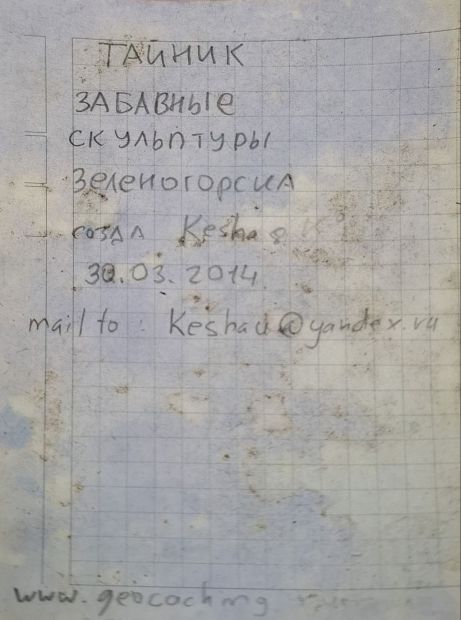 ТАЙНИК
ЗАБАВНЫЕ
СКУЛЬПТУРЫ
ЗЕЛЕНОГОРСКА
созда Kesha &
30.03.2014
mail to : Keshau@yandex.ru
www.geocaching